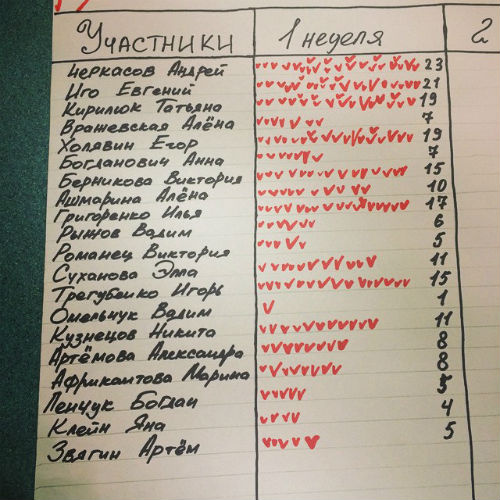 Участники 1 неделя 2
Черкасов Андрей 23
Иго Евгений 21
Кирилюк Татьяна 19
Вражевская Алёна 7
Холявин Егор 19
Богданович Анна 7
Берникова Виктория 15
Ашмарина Алёна 10
Григоренко Илья 17
Рыжов Вадим 6
Романец Виктория 5
Суханова Элла 11
Трегубенко Игорь 15
Омельчук Вадим 1
Кузнецов Никита 11
Артёмова Александра 8
Африкантова Марина 8
Ленчук Богдан 5
Клейн Яна 4
Звягин Артём 5